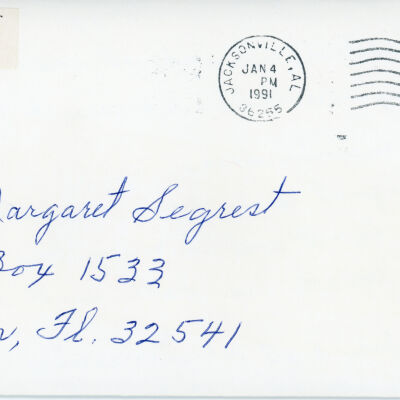 JACKSONVILLE, AL
JAN 4
PM
1991
36265
Margaret Segrest
Box 1533
n, Fl. 32541